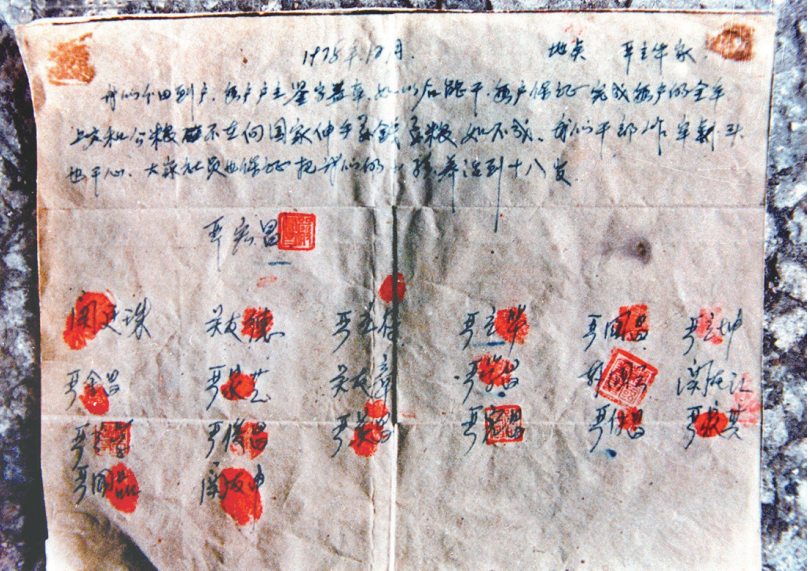 1978年12月. 地点 严立华家
我们分田到户,每户户主签字盖章,如以后能干,每户保证完成每户的全年
上交和公粮 不在向国家伸手要钱要粮 如不成、我们干部作牢刹头
也干心、大家社员也保证把我们的小孩养活到十八岁
严宏昌
关廷珠 关友德 严立符 严立华 严国昌 严立坤
严金昌 严家芝 关友章 严学昌 韩国云 关友江
严俊昌 严美昌 严付昌 严家其
严国品 关友申